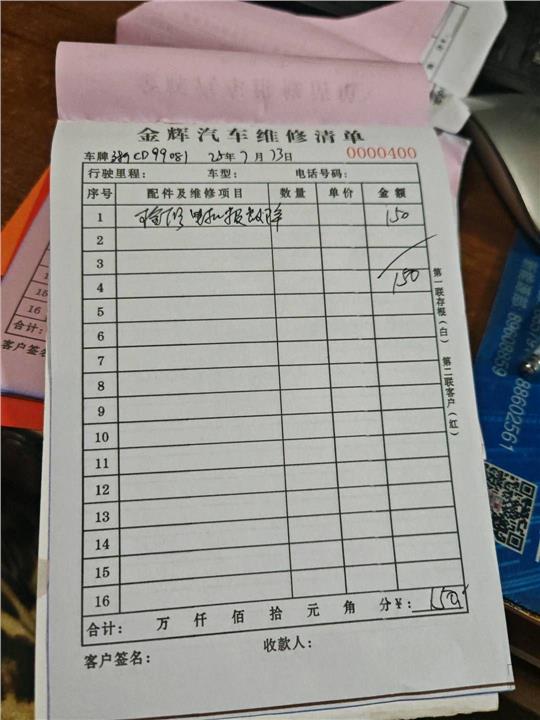 金辉汽车维修清单
车牌 CD99081 25年7月23日 0000400
行驶里程: 车型: 电话号码:
序号 配件及维修项目 数量 单价 金额
1 检修 报故障 150
2
3
4 150
5
6
7
8
9
10
11
12
13
14
15
16
合计: 万 仟 佰 拾 元 角 分 ¥: 150
客户签名: 收款人:
第一联存根(白) 第二联客户(红)
15
16
合计:
客户签名
89608859
88602561